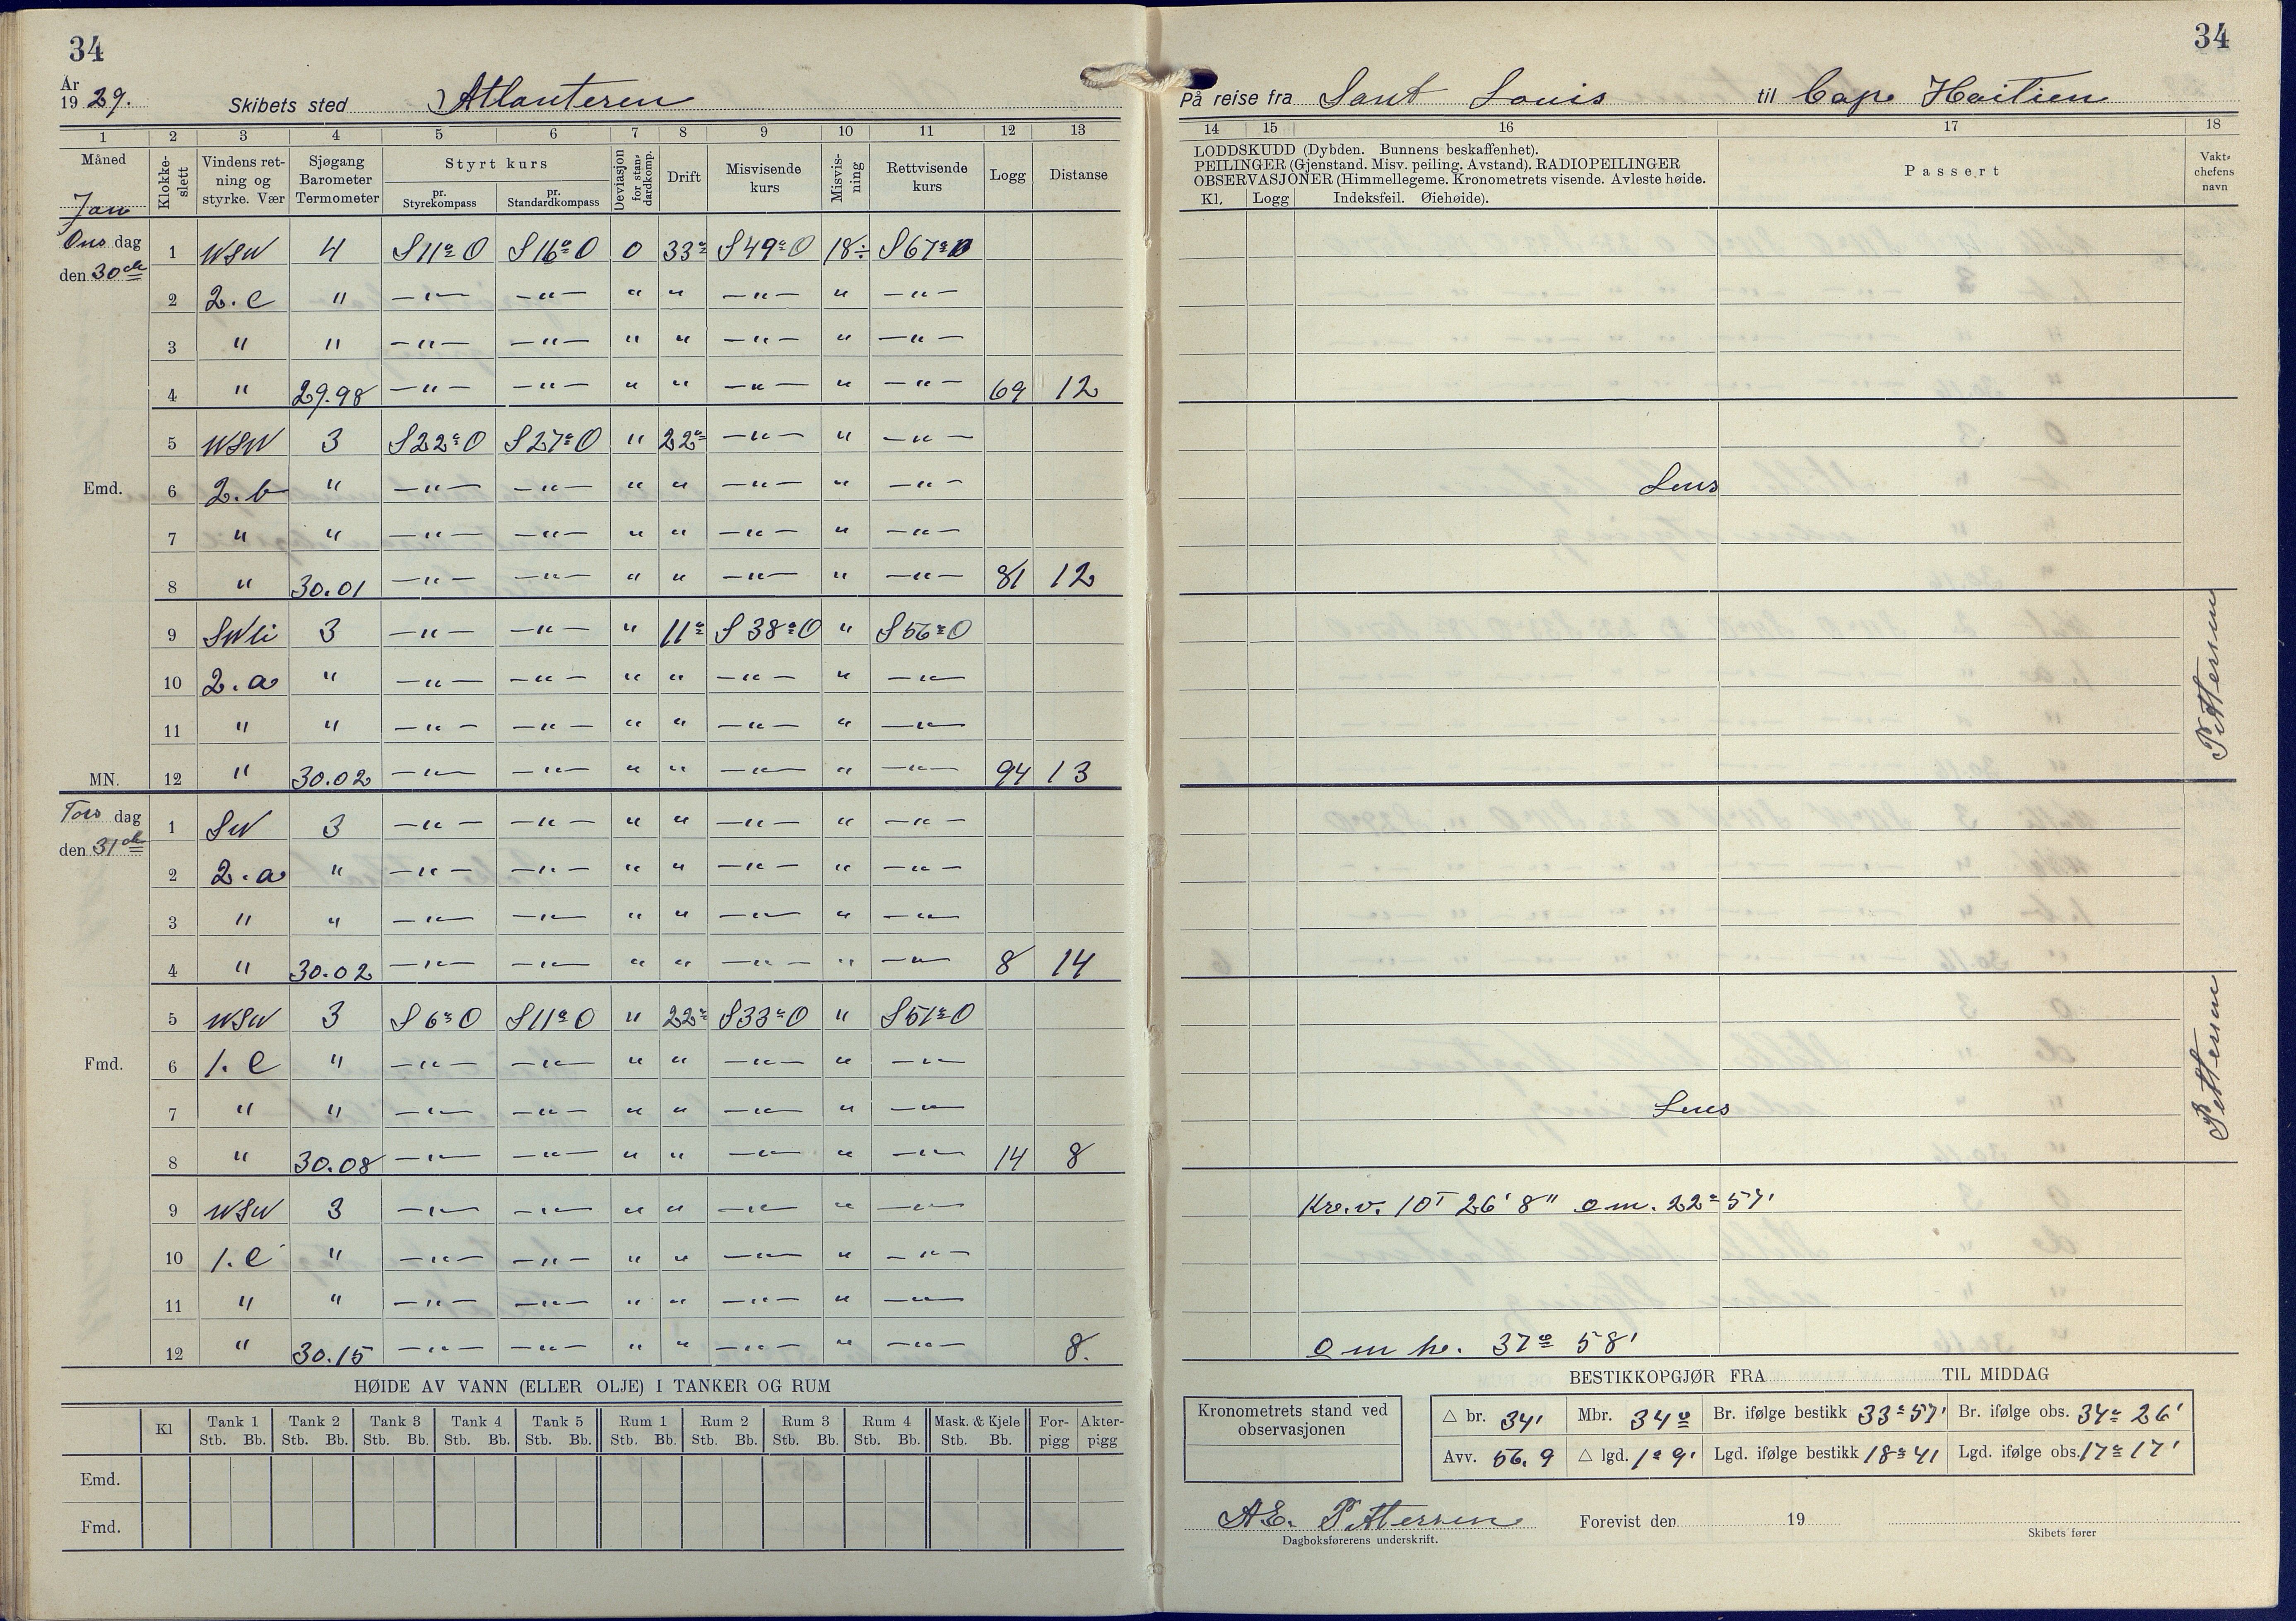 34
År
19 29.
Skibets sted Atlanteren
1 2 3 4 5 6 7 8 9 10 11 12 13
Måned Jan
Klokke-slett
Vindens ret-ning og styrke. Vær
Sjøgang Barometer Termometer
Styrt kurs
pr. Styrekompass
pr. Standardkompass
Deviasjon for stan-dardkomp.
Drift
Misvisende kurs
Misvis-ning
Rettvisende kurs
Logg
Distanse
Ons dag
den 30de
1 WSW 4 S11°O S16°O 0 33° S49°O 18÷ S67°O
2 2.c " —"— —"— " " —"— " —"—
3 " " —"— —"— " " —"— " —"—
4 " 29.98 —"— —"— " " —"— " —"— 69 12
5 WSW 3 S22°O S27°O " 22° —"— " —"—
Emd.
6 2.b " —"— —"— " " —"— " —"—
7 " " —"— —"— " " —"— " —"—
8 " 30.01 —"— —"— " " —"— " —"— 81 12
9 SWli 3 —"— —"— " 11° S38°O " S56°O
10 2.a " —"— —"— " " —"— " —"—
11 " " —"— —"— " " —"— " —"—
MN.
12 " 30.02 —"— —"— " " —"— " —"— 94 13
Tors dag
den 31de
1 SW 3 —"— —"— " " —"— " —"—
2 2.a " —"— —"— " " —"— " —"—
3 " " —"— —"— " " —"— " —"—
4 " 30.02 —"— —"— " " —"— " —"— 8 14
5 WSW 3 S6°O S11°O " 22° S33°O " S51°O
Fmd.
6 1.c " —"— —"— " " —"— " —"—
7 " " —"— —"— " " —"— " —"—
8 " 30.08 —"— —"— " " —"— " —"— 14 8
9 WSW 3 —"— —"— " " —"— " —"—
10 1.c " —"— —"— " " —"— " —"—
11 " " —"— —"— " " —"— " —"—
12 " 30.15 —"— —"— " " —"— " —"— 8.
HØIDE AV VANN (ELLER OLJE) I TANKER OG RUM
Kl Tank 1 Tank 2 Tank 3 Tank 4 Tank 5 Rum 1 Rum 2 Rum 3 Rum 4 Mask. & Kjele For-pigg Akter-pigg
Stb. Bb. Stb. Bb. Stb. Bb. Stb. Bb. Stb. Bb. Stb. Bb. Stb. Bb. Stb. Bb. Stb. Bb. Stb. Bb.
Emd.
Fmd.
34
På reise fra Sant Louis til Cap. Haitien
14 15 16 17 18
LODDSKUDD (Dybden. Bunnens beskaffenhet).
PEILINGER (Gjenstand. Misv. peiling. Avstand). RADIOPEILINGER
OBSERVASJONER (Himmellegeme. Kronometrets visende. Avleste høide.
Kl. Logg Indeksfeil. Øiehøide).
Passert
Vakt-chefens navn
Lens
Pettersen
Lens
Pettersen
Kro.v. 10T 26' 8" ʘ m. 22° 57'
ʘ m hø. 37° 58'
BESTIKKOPGJØR FRA TIL MIDDAG
Kronometrets stand ved observasjonen
△ br. 34' Mbr. 34° Br. ifølge bestikk 33° 57' Br. ifølge obs. 34° 26'
Avv. 56.9 △ lgd. 1° 9' Lgd. ifølge bestikk 18° 41 Lgd. ifølge obs. 17° 17'
A.E. Pettersen
Dagboksførerens underskrift.
Forevist den 19
Skibets fører